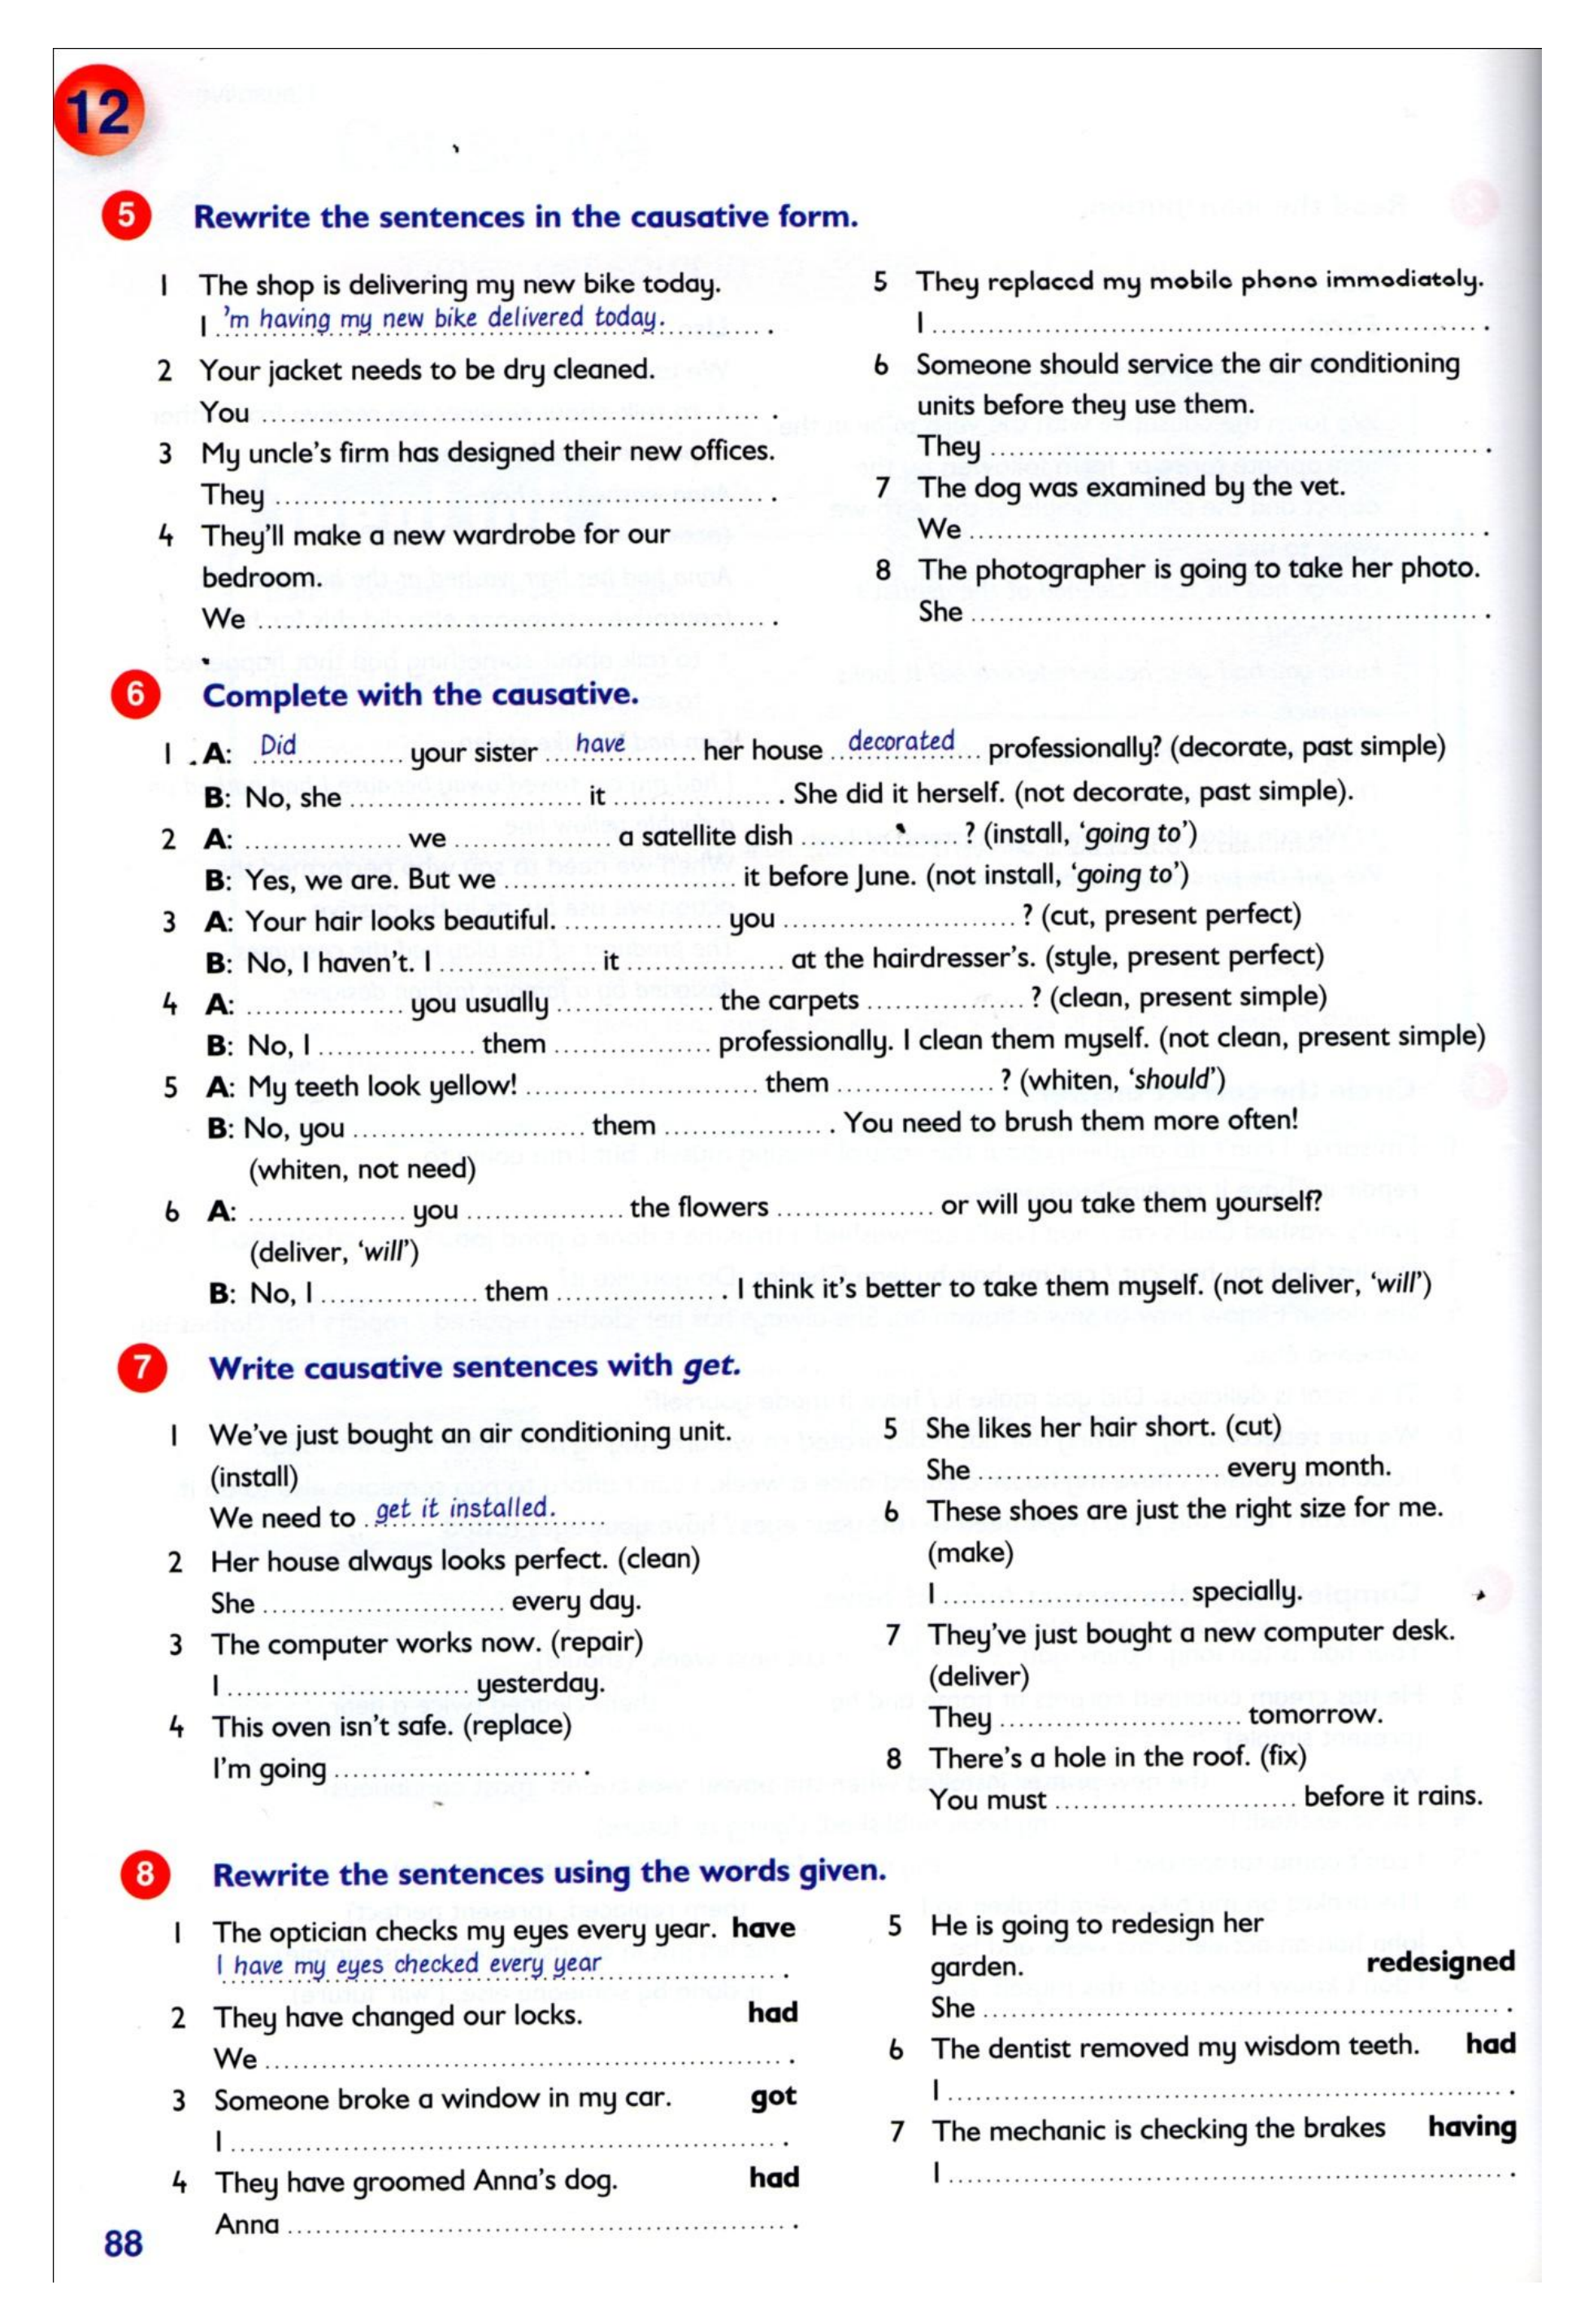 12
5 Rewrite the sentences in the causative form.
1 The shop is delivering my new bike today.
I 'm having my new bike delivered today. .
2 Your jacket needs to be dry cleaned.
You .
3 My uncle's firm has designed their new offices.
They .
4 They'll make a new wardrobe for our
bedroom.
We .
5 They replaced my mobile phone immediately.
I .
6 Someone should service the air conditioning
units before they use them.
They .
7 The dog was examined by the vet.
We .
8 The photographer is going to take her photo.
She .
6 Complete with the causative.
1 A: Did your sister have her house decorated professionally? (decorate, past simple)
B: No, she ........ it ........ . She did it herself. (not decorate, past simple).
2 A: ........ we ........ a satellite dish ........ ? (install, 'going to')
B: Yes, we are. But we ........ it before June. (not install, 'going to')
3 A: Your hair looks beautiful. ........ you ........ ? (cut, present perfect)
B: No, I haven't. I ........ it ........ at the hairdresser's. (style, present perfect)
4 A: ........ you usually ........ the carpets ........ ? (clean, present simple)
B: No, I ........ them ........ professionally. I clean them myself. (not clean, present simple)
5 A: My teeth look yellow! ........ them ........ ? (whiten, 'should')
B: No, you ........ them ........ . You need to brush them more often!
(whiten, not need)
6 A: ........ you ........ the flowers ........ or will you take them yourself?
(deliver, 'will')
B: No, I ........ them ........ . I think it's better to take them myself. (not deliver, 'will')
7 Write causative sentences with get.
1 We've just bought an air conditioning unit.
(install)
We need to get it installed.
2 Her house always looks perfect. (clean)
She ........ every day.
3 The computer works now. (repair)
I ........ yesterday.
4 This oven isn't safe. (replace)
I'm going ........ .
5 She likes her hair short. (cut)
She ........ every month.
6 These shoes are just the right size for me.
(make)
I ........ specially.
7 They've just bought a new computer desk.
(deliver)
They ........ tomorrow.
8 There's a hole in the roof. (fix)
You must ........ before it rains.
8 Rewrite the sentences using the words given.
1 The optician checks my eyes every year. have
I have my eyes checked every year .
2 They have changed our locks. had
We .
3 Someone broke a window in my car. got
I .
4 They have groomed Anna's dog. had
Anna .
5 He is going to redesign her
garden. redesigned
She .
6 The dentist removed my wisdom teeth. had
I .
7 The mechanic is checking the brakes having
I .
88